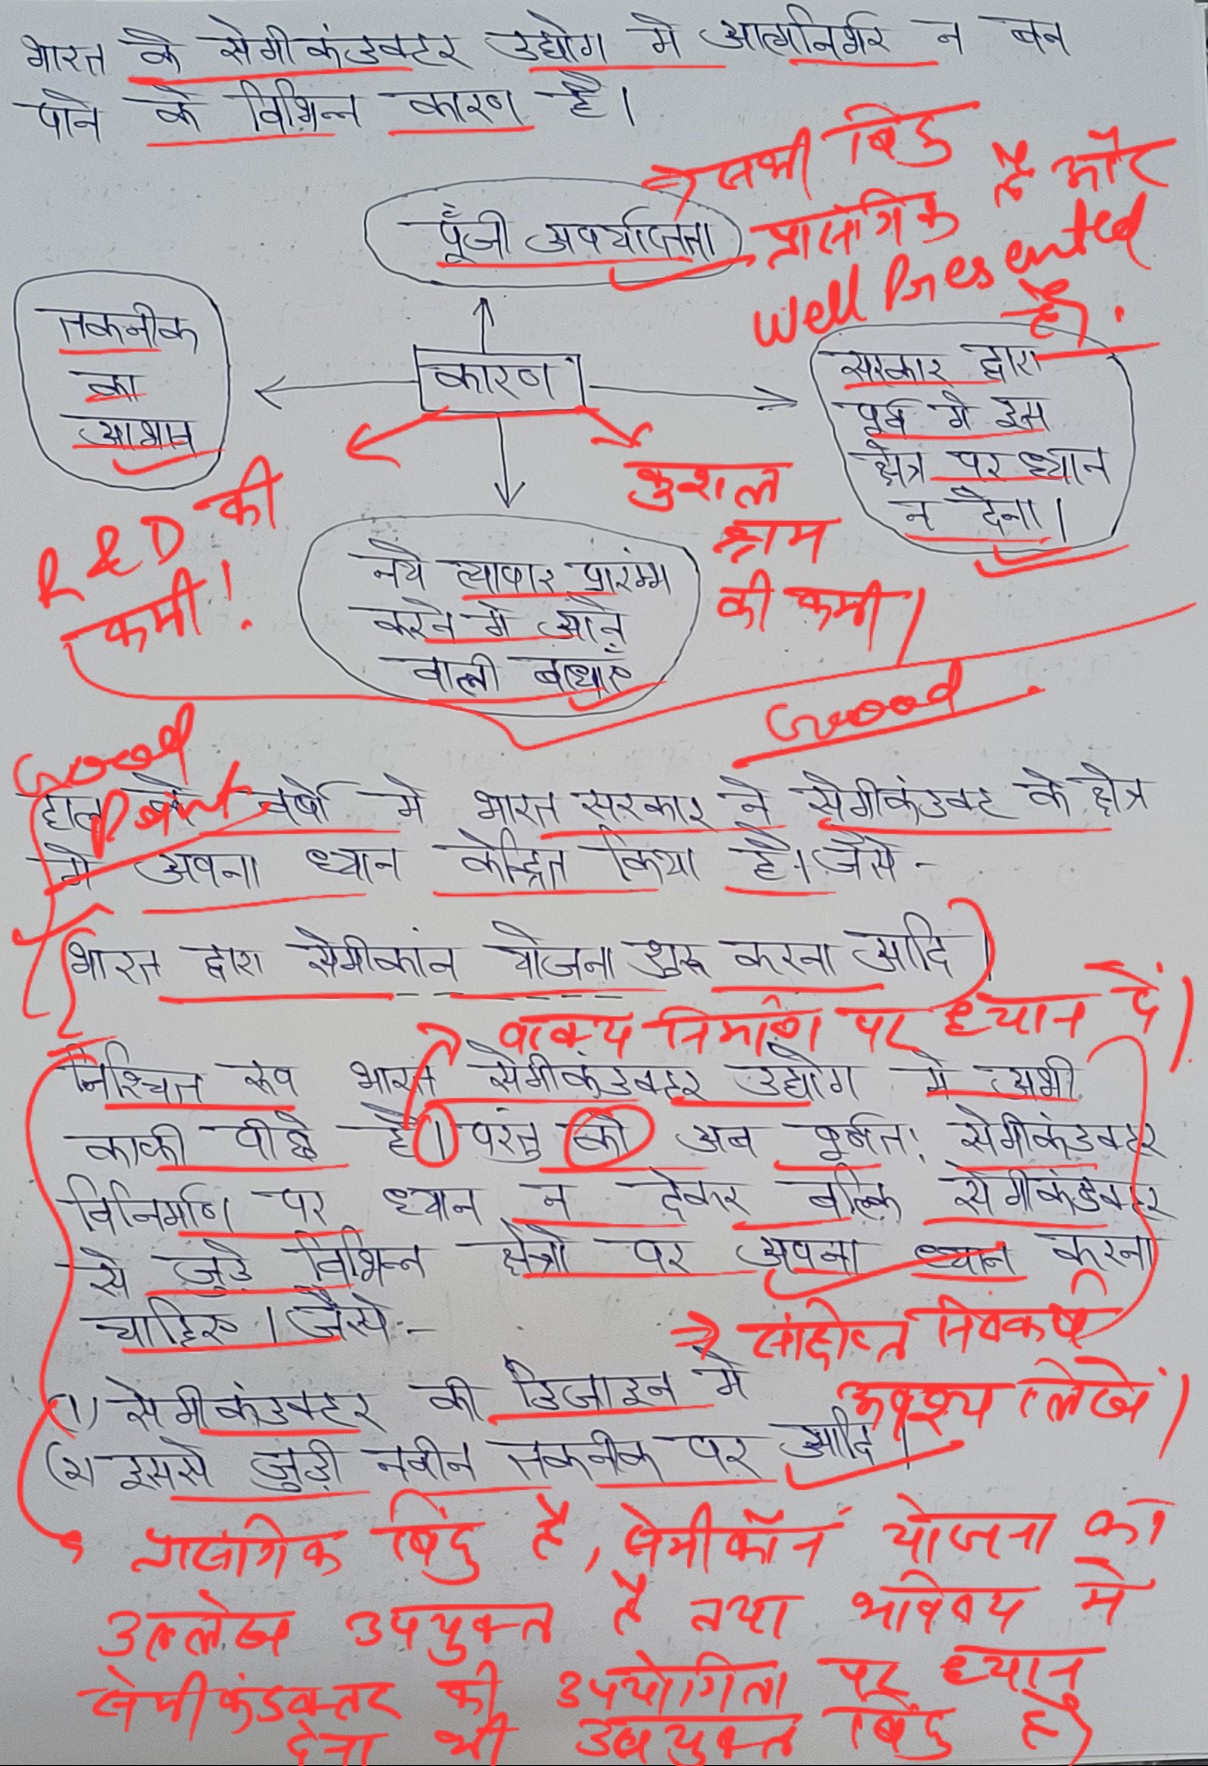 भारत के सेमीकंडक्टर उद्योग मे आत्मनिर्भर न बन
पाने के विभिन्न कारण है।
→ सभी बिंदु
प्रासंगिक है और
well Presented
है।
पूँजी अपर्याप्तता
तकनीक
का
आभाव
कारण
सरकार द्वारा
पूर्व मे इस
क्षेत्र पर ध्यान
न देना।
R & D की
कमी!
कुशल
श्रम
की कमी।
नये व्यापार प्रारम्भ
करने मे आने
वाली बाधाएँ
Good
Good
Point
हाल के वर्षो मे भारत सरकार ने सेमीकंडक्टर के क्षेत्र
मे अपना ध्यान केन्द्रित किया है। जैसे -
भारत द्वारा सेमीकॉन योजना शुरू करना आदि।
→ वाक्य निर्माण पर ध्यान दें।
निश्चित रूप भारत सेमीकंडक्टर उद्योग मे अभी
काफी पीछे है। परंतु को अब पूर्णत: सेमीकंडक्टर
विनिर्माण पर ध्यान न देकर बल्कि सेमीकंडक्टर
से जुड़े विभिन्न क्षेत्रो पर अपना ध्यान करना
चाहिए। जैसे:-
→ संक्षिप्त निष्कर्ष
अवश्य लिखें।
(1) सेमीकंडक्टर की डिजाइन मे
(2) इससे जुड़ी नवीन तकनीक पर आदि।
प्रासंगिक बिंदु है, सेमीकॉन योजना का
उल्लेख उपयुक्त है तथा भविष्य में
सेमीकंडक्टर की उपयोगिता पर ध्यान
देना भी उपयुक्त बिंदु है।